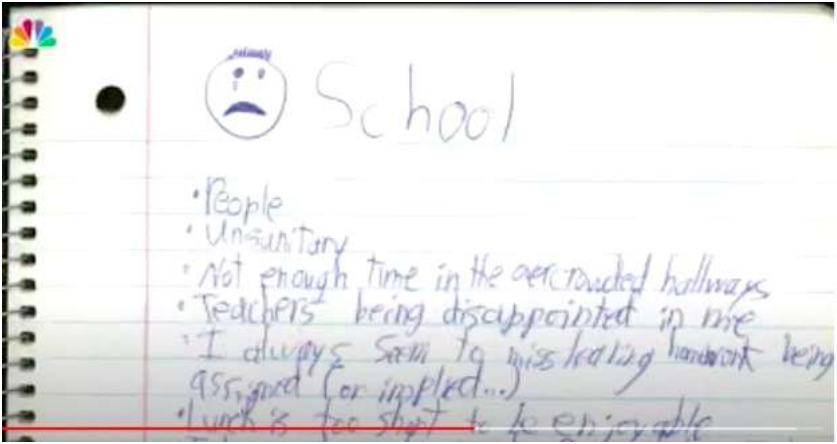 School
• People
• Unsanitary
• Not enough time in the overcrowded hallways
• Teachers being disappointed in me
• I always seem to miss homework being
assigned (or implied...)
• Lunch is too short to be enjoyable